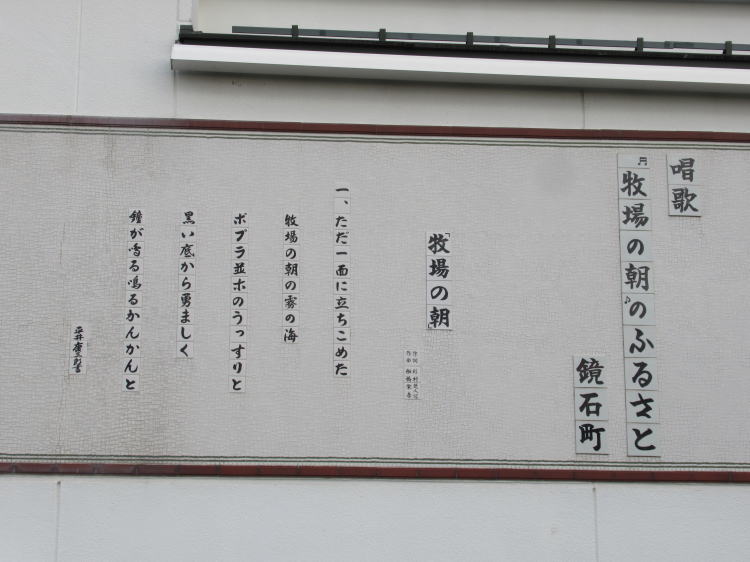 唱歌
♬牧場の朝♪のふるさと
鏡石町
「牧場の朝」
一、ただ一面に立ちこめた
牧場の朝の霧の海
ポプラ並木のうっすりと
黒い底から勇ましく
鐘が鳴る鳴るかんかんと